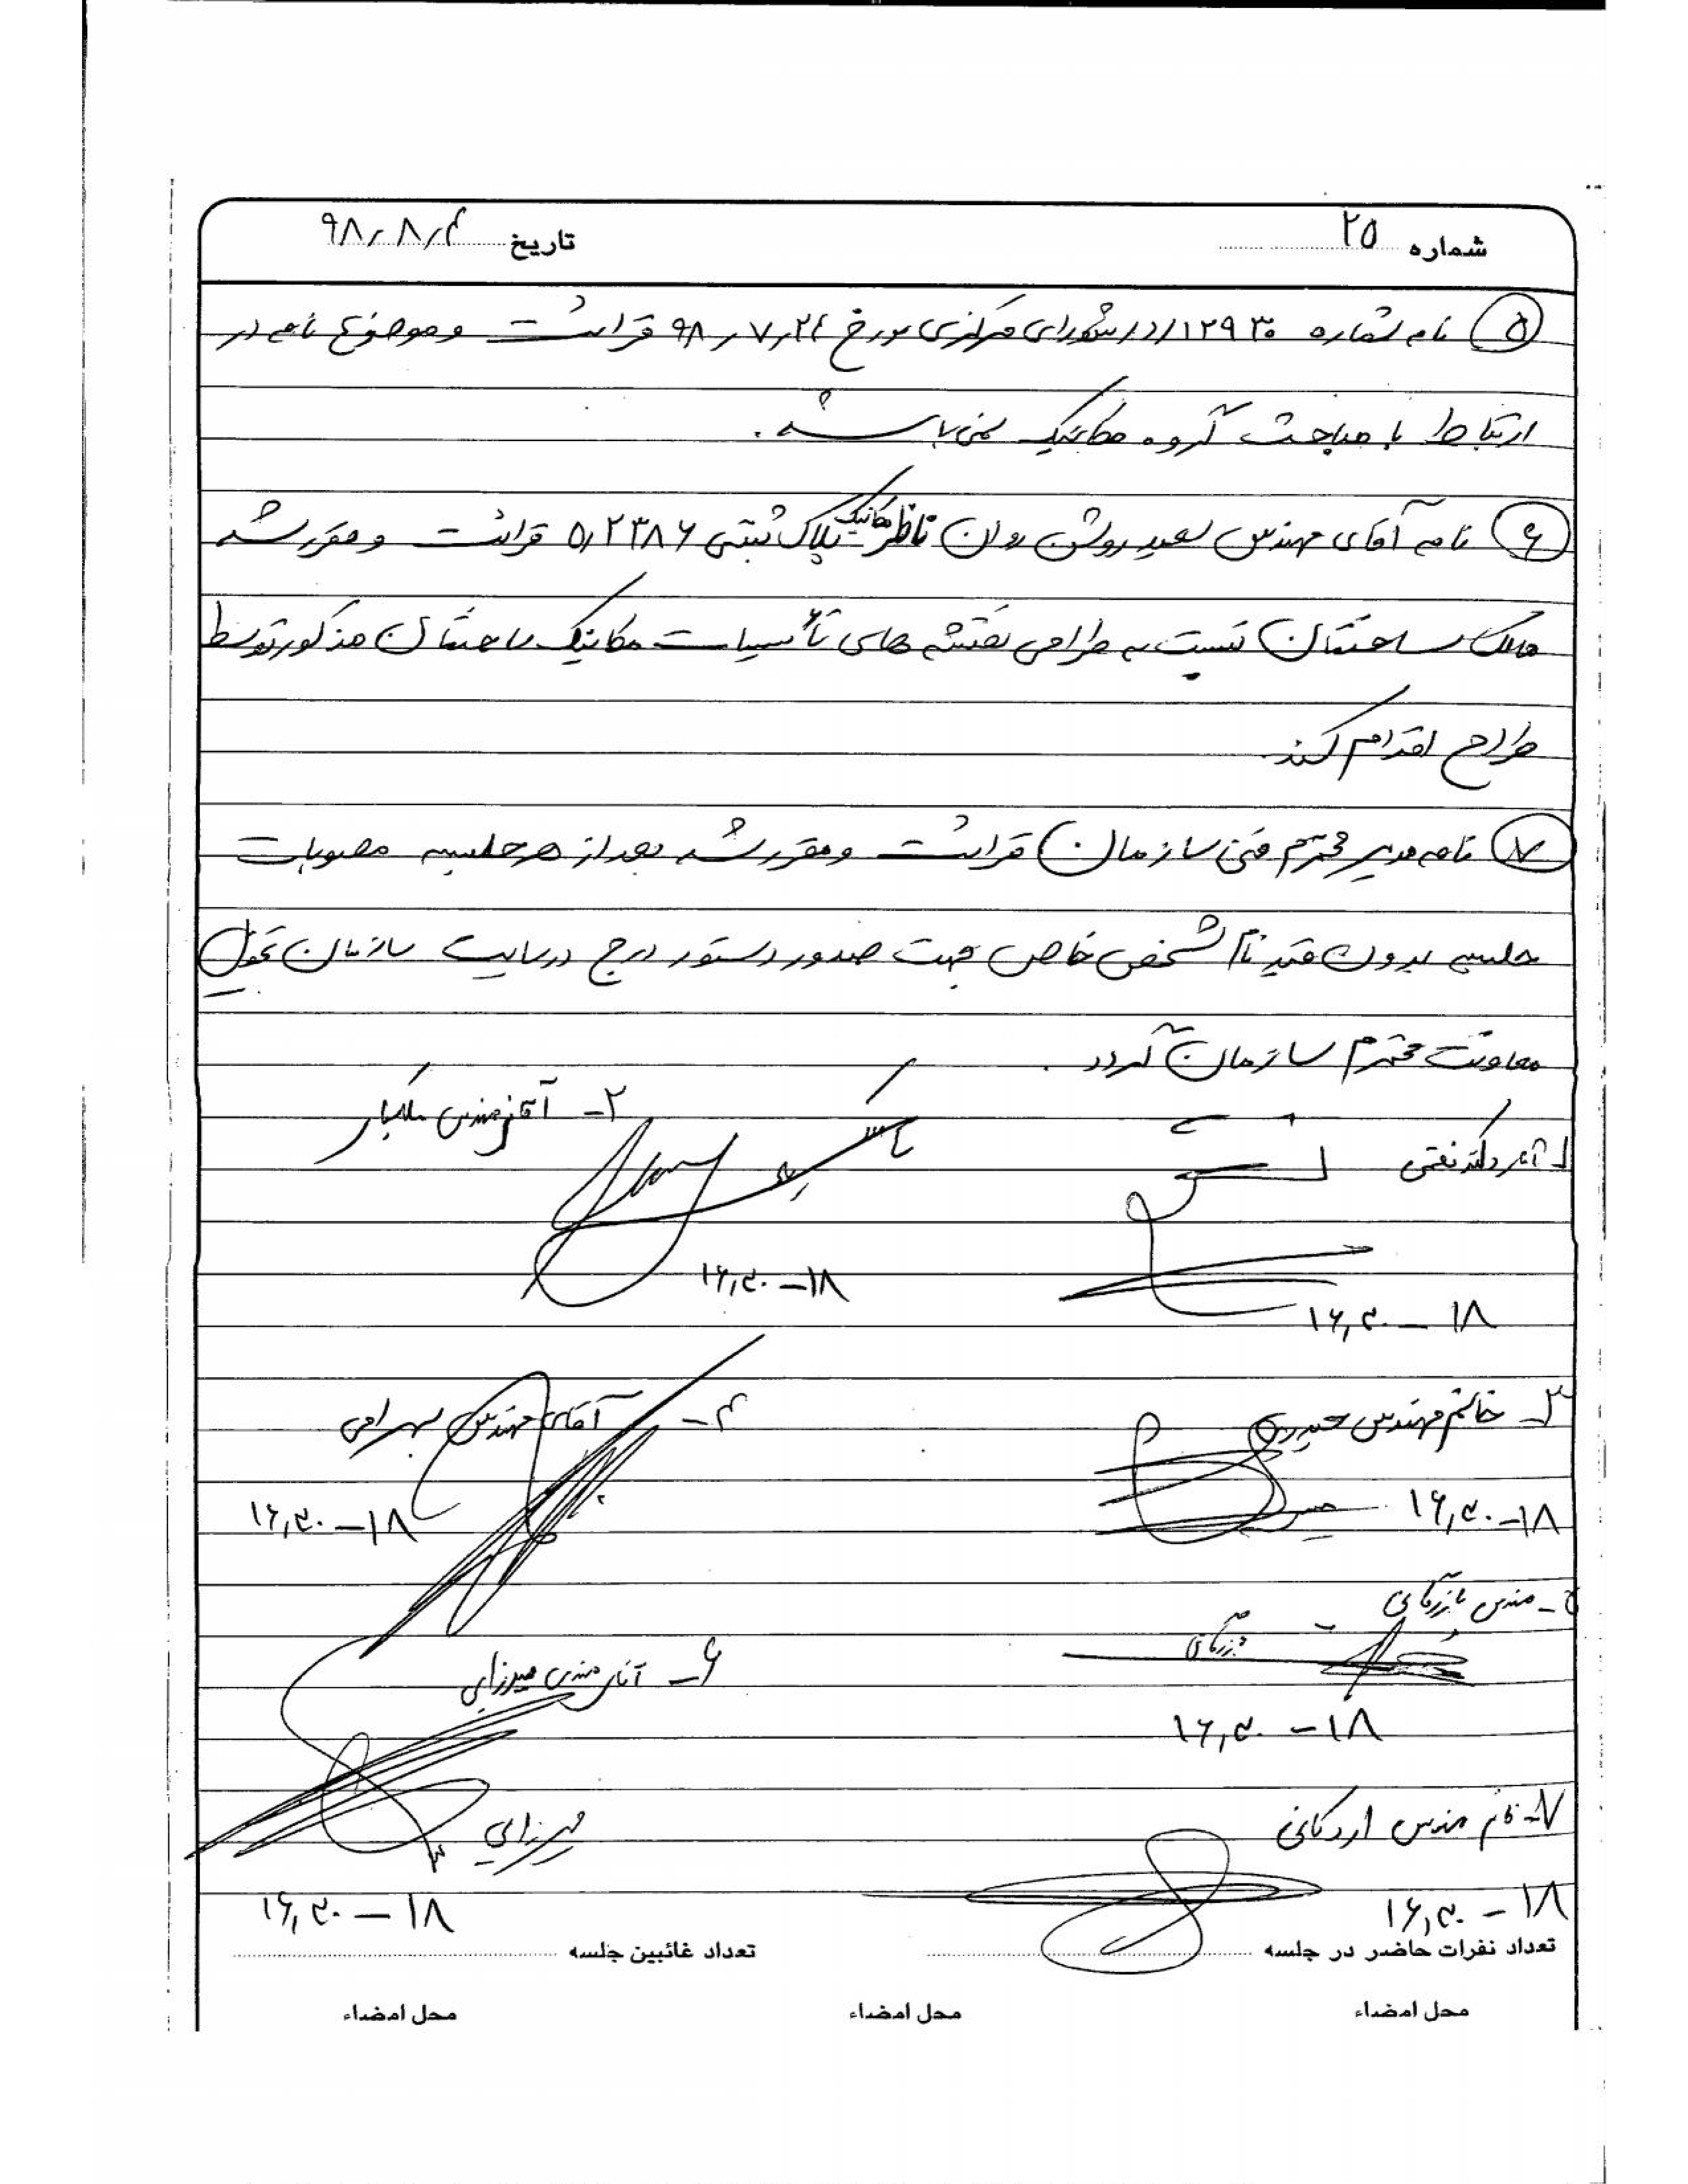 شماره ۲۵
تاریخ ۹۸٫۸٫۴
۵ نامه شماره ۱۲۹۳۰/د/ر شورای مرکزی مورخ ۹۸٫۷٫۲۴ قرائت و موضوع نامه در
ارتباط با مباحث گروه مکانیک نمی باشد.
۶ نامه آقای مهندس سعید روشن روان ناظر مکانیک پلاک ثبتی ۵٫۲۳۸۶ قرائت و مقرر شد
مالک ساختمان نسبت به طراحی نقشه های تأسیسات مکانیک ساختمان مذکور توسط
طراح اقدام کند.
۷ نامه مدیر محترم فنی سازمان قرائت و مقرر شد بعد از هر جلسه مصوبات
جلسه بدون قید نام شخص خاص جهت صدور دستور درج در سایت سازمان تحویل
معاونت محترم سازمان گردد.
۱- آقای دکتر نفتی
۲- آقای مهندس ملکیار
۱۶٫۳۰ – ۱۸
۱۶٫۳۰ – ۱۸
۳- خانم مهندس حیدری
۴- آقای مهندس بهرامی
۱۶٫۳۰ – ۱۸
۱۶٫۳۰ – ۱۸
۵- مهندس بازرگانی
۶- آقای مهندس میرزایی
۱۶٫۳۰ – ۱۸
۷- خانم مهندس اردکانی
میرزایی
۱۶٫۳۰ – ۱۸
۱۶٫۳۰ – ۱۸
تعداد نفرات حاضر در جلسه
تعداد غائبین جلسه
محل امضاء محل امضاء محل امضاء